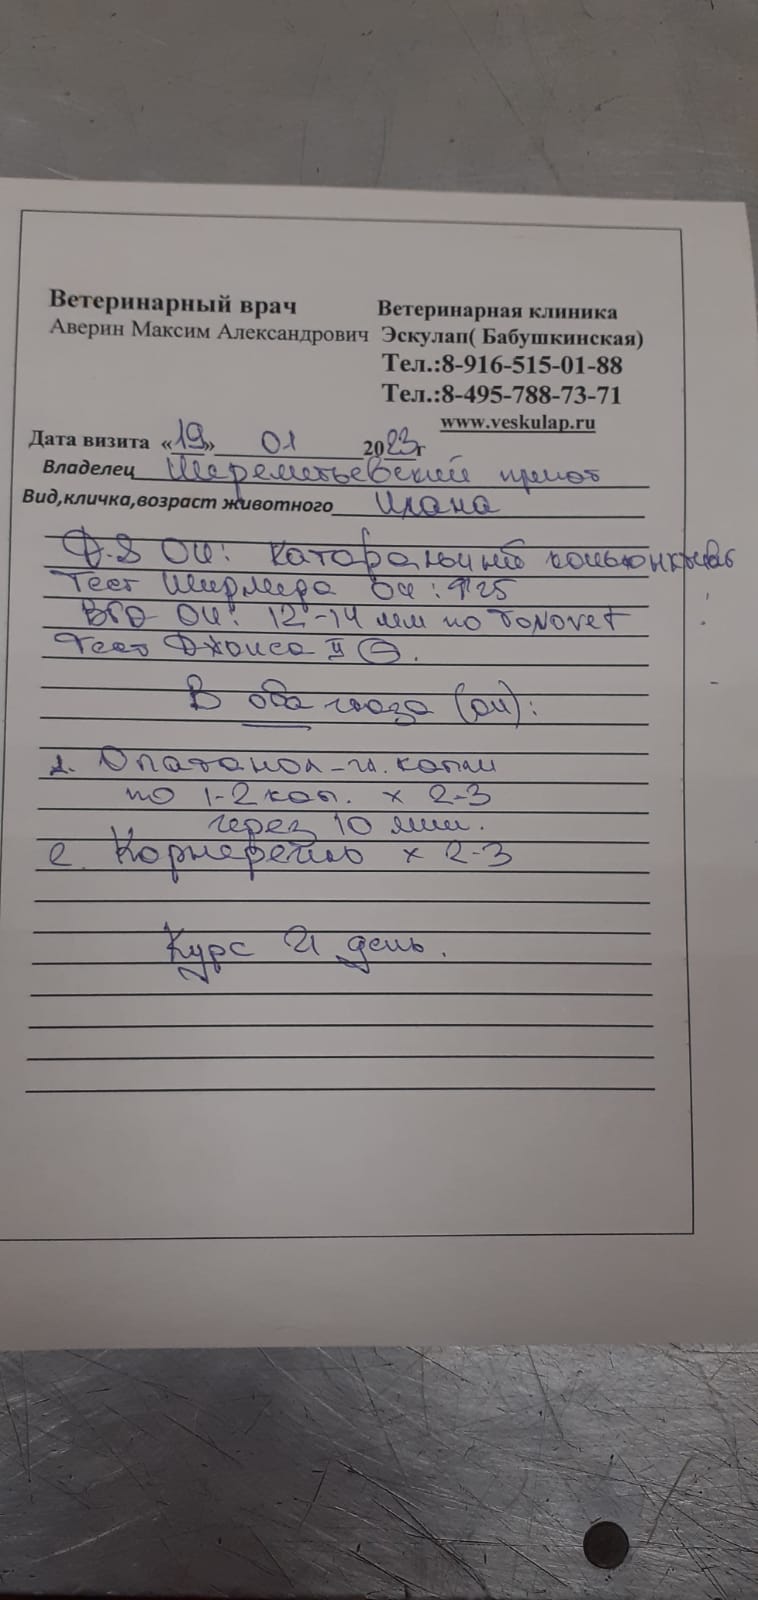 Ветеринарный врач
Аверин Максим Александрович
Ветеринарная клиника
Эскулап( Бабушкинская)
Тел.:8-916-515-01-88
Тел.:8-495-788-73-71
www.veskulap.ru
Дата визита «19» 01 2023г
Владелец Шереметьевский приют
Вид,кличка,возраст животного Илана
Д-з ОИ: катаральный коньюнктивит
Тест Ширмера ОИ: ↑25
ВГД ОИ: 12-14 мм по TONOVET
Тест Джонса II ⊖.
В оба глаза (ОИ):
1. Опатанол - гл. капли
по 1-2 кап. х 2-3
через 10 мин.
2. Корнерегель х 2-3
Курс 21 день.